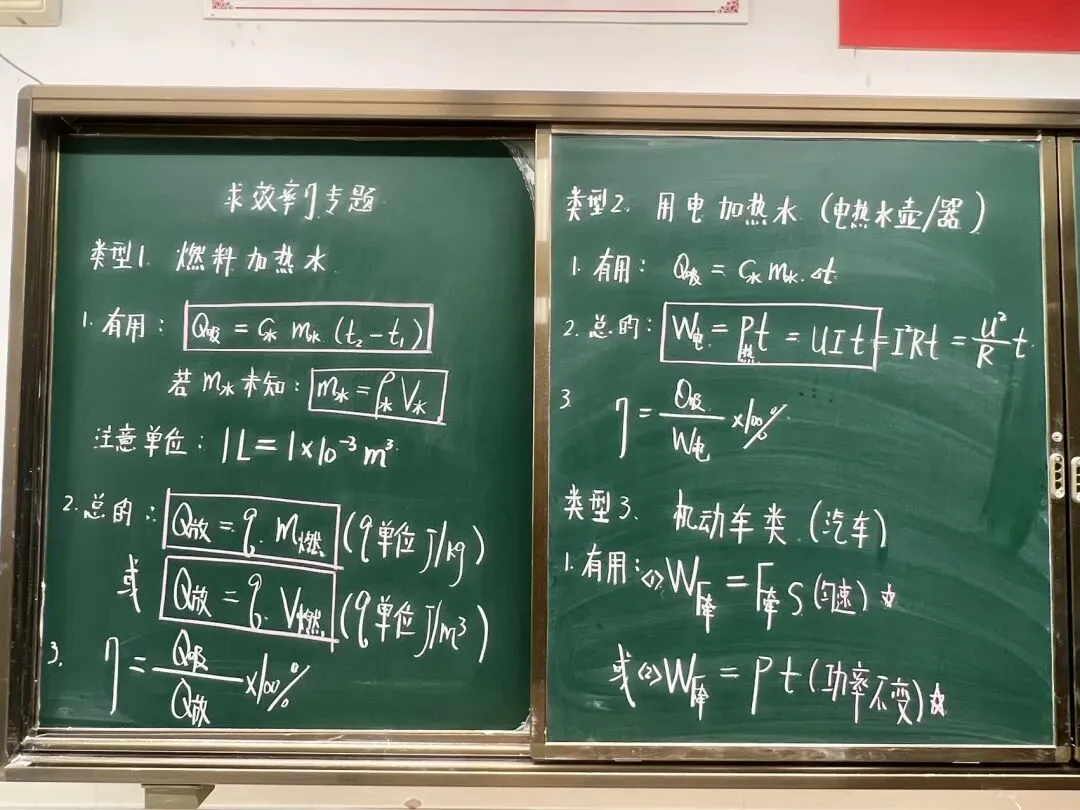 求效率η专题
类型1. 燃料加热水
1. 有用: Q吸 = C水 m水 (t₂-t₁)
若 m水 未知: m水 = ρ水 V水
注意单位: 1L = 1×10⁻³ m³
2. 总的: Q放 = q m燃 (q单位 J/kg)
或 Q放 = q V燃 (q单位 J/m³)
3. η = Q吸/Q放 ×100%
类型2. 用电加热水 (电热水壶/器)
1. 有用: Q吸 = C水 m水 Δt
2. 总的: W电 = P热t = UIt = I²Rt = U²/R t
3. η = Q吸/W电 ×100%
类型3. 机动车类 (汽车)
1. 有用: <1> WF牵 = F牵 S (匀速) ☆
或 <2> WF牵 = Pt (功率不变) ☆